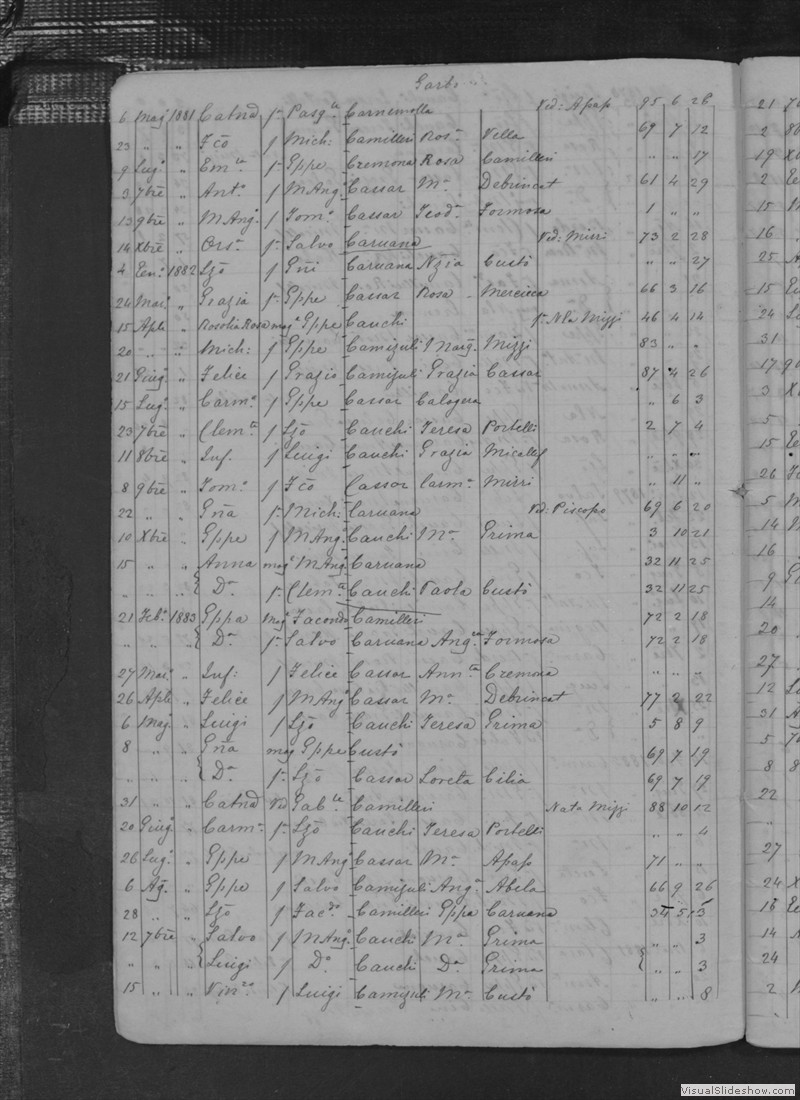 Garbo
6 Mag. 1881 Catnd f. Pasq.le Carnemolla Ved: Apap 95 6 28
23 " " Fcō f Mich: Camilleri Ros.a Vella 69 7 12
9 Lug.o " Em.le f. Gppe Cremona Rosa Camilleri " " 17
3 7bre " Ant.o f MAng.o Cassar M.a Debrincat 61 4 29
13 9bre " MAng.o f Tom.o Cassar Teod.a Formosa 1 " "
14 Xbre " Ors.a f. Salvo Caruana Ved: Mizzi 73 2 28
4 Gen.o 1882 Lzō f Gñi Caruana Nzia Custò " " 27
24 Mar. " Grazia f. Gppe Cassar Rosa Mercieca 66 3 16
15 Aple " Rosolia Rosa mog.e Gppe Cauchi f. Mizzi 46 4 14
20 " " Mich: f Gppe Camizuli Marg. Mizzi 83 " "
21 Giug.o " Felice f Grazio Camizuli Grazia Cassar 87 4 26
15 Lug.o " Carm.o f Gppe Cassar Calogera " 6 3
23 7bre " Clem.te f Lzō Cauchi Teresa Portelli 2 7 4
11 8bre " Inf. f Luigi Cauchi Grazia Micallef " " "
8 9bre " Tom.o f Fcō Cassar Carm.a Mizzi " 11 "
22 " " Gña f. Mich: Caruana Ved: Piscopo 69 6 20
10 Xbre " Gppe f MAng.o Cauchi M.a Grima 3 10 21
15 " " Anna mog.e MAng.o Caruana 32 11 25
" " " { D.a f. Clem.te Cauchi Paola Custò 32 11 25
21 Feb.o 1883 Gppa Mog.e Facondo Camilleri 72 2 18
" " " { D.a f. Salvo Caruana Ang.ca Formosa 72 2 18
27 Mar. " Inf: f Felice Cassar Ann.ta Cremona " " "
26 Aple " Felice f MAng.o Cassar M.a Debrincat 77 2 22
6 Mag. " Luigi f Lzō Cauchi Teresa Grima 5 8 9
8 " " Gña mog Gppe Custò 69 7 19
" " " { D.a f. Lzō Cassar Loreta Cilia 69 7 19
31 " " Catnd Ved Gab.le Camilleri Nata Mizzi 88 10 12
20 Giug.o " Carm.a f. Lzō Cauchi Teresa Portelli " " 4
26 Lug.o " Gppe f MAng.o Cassar M.a Apap 71 " "
6 Ag. " Gppe f Salvo Camizuli Ang.a Abela 66 9 26
28 " " Lzō f Fac.do Camilleri Gppa Caruana
12 7bre " Salvo f MAng.o Cauchi M.a Grima " " 3
" " " { Luigi f D.o Cauchi D.a Grima { " " 3
15 " " Vinz.o f Luigi Camizuli M.a Custò " " 8
VisualSlideshow.com